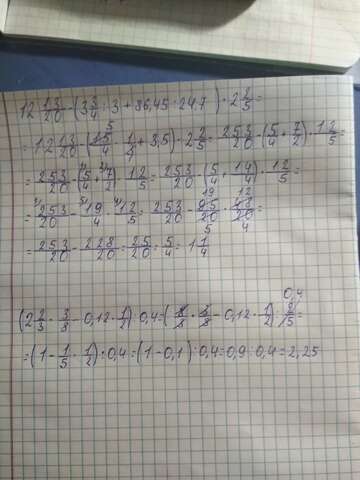 12 13/20 - (3 3/4 : 3 + 86,45 : 247) · 2 2/5 =
= (12 13/20 - (15/4 · 1/3 + 3,5) · 2 2/5 = 253/20 - (5/4 + 7/2) · 12/5 =
= 253/20 - (5/4 + 7/2) · 12/5 = 253/20 - (5/4 + 14/4) · 12/5 =
= 253/20 - 19/4 · 12/5 = 253/20 - 95/20 · 48/20 =
= 253/20 - 228/20 = 25/20 = 5/4 = 1 1/4
(2 2/3 · 3/8 - 0,12 · 1/2) : 0,4 = (8/3 · 3/8 - 0,12 · 1/2) : 2/5 =
= (1 - 1/5 · 1/2) : 0,4 = (1 - 0,1) : 0,4 = 0,9 : 0,4 = 2,25